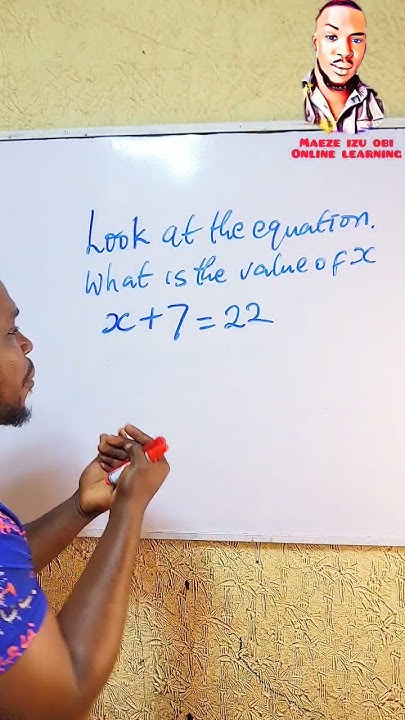 MAEZE IZU OBI
ONLINE LEARNING
Look at the equation.
What is the value of x
x + 7 = 22